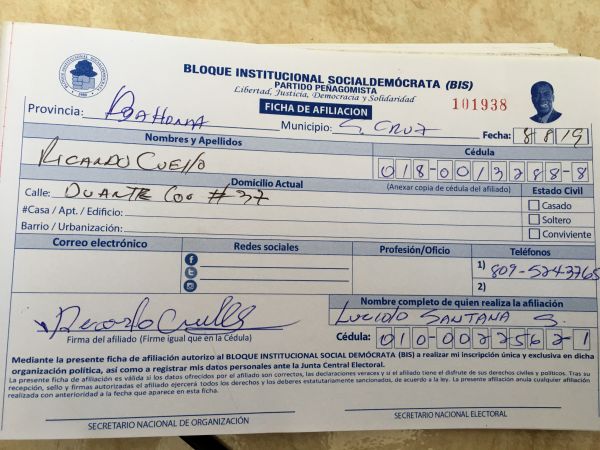 BLOQUE INSTITUCIONAL SOCIALDEMÓCRATA (BIS)
PARTIDO PEÑAGOMISTA
Libertad, Justicia, Democracia y Solidaridad
FICHA DE AFILIACION
101938
Provincia: BAHORUCA Municipio: S. CRUZ Fecha: 8 8 19
Nombres y Apellidos Cédula
RICARDO CUELLO 018-0013288-8
Domicilio Actual (Anexar copia de cédula del afiliado) Estado Civil
Calle: DUARTE #37
Casado
#Casa / Apt. / Edificio: Soltero
Barrio / Urbanización: Conviviente
Correo electrónico Redes sociales Profesión/Oficio Teléfonos
1) 809-5243765
2)
Nombre completo de quien realiza la afiliación
SANTANA S.
Firma del afiliado (Firme igual que en la Cédula) Cédula: 010-0022562-1
Mediante la presente ficha de afiliación autorizo al BLOQUE INSTITUCIONAL SOCIAL DEMÓCRATA (BIS) a realizar mi inscripción única y exclusiva en dicha
organización política, así como a registrar mis datos personales ante la Junta Central Electoral.
La presente ficha de afiliación es válida si los datos ofrecidos por el afiliado son correctos, las declaraciones veraces y si el afiliado tiene el disfrute de sus derechos civiles y políticos. Tras su
recepción, sello y firmas autorizadas el afiliado ejercerá todos los derechos y los deberes estatutariamente sancionados, de acuerdo a la ley. La presente afiliación anula cualquier afiliación
realizada con anterioridad a la fecha que aparece en esta ficha.
SECRETARIO NACIONAL DE ORGANIZACIÓN SECRETARIO NACIONAL ELECTORAL